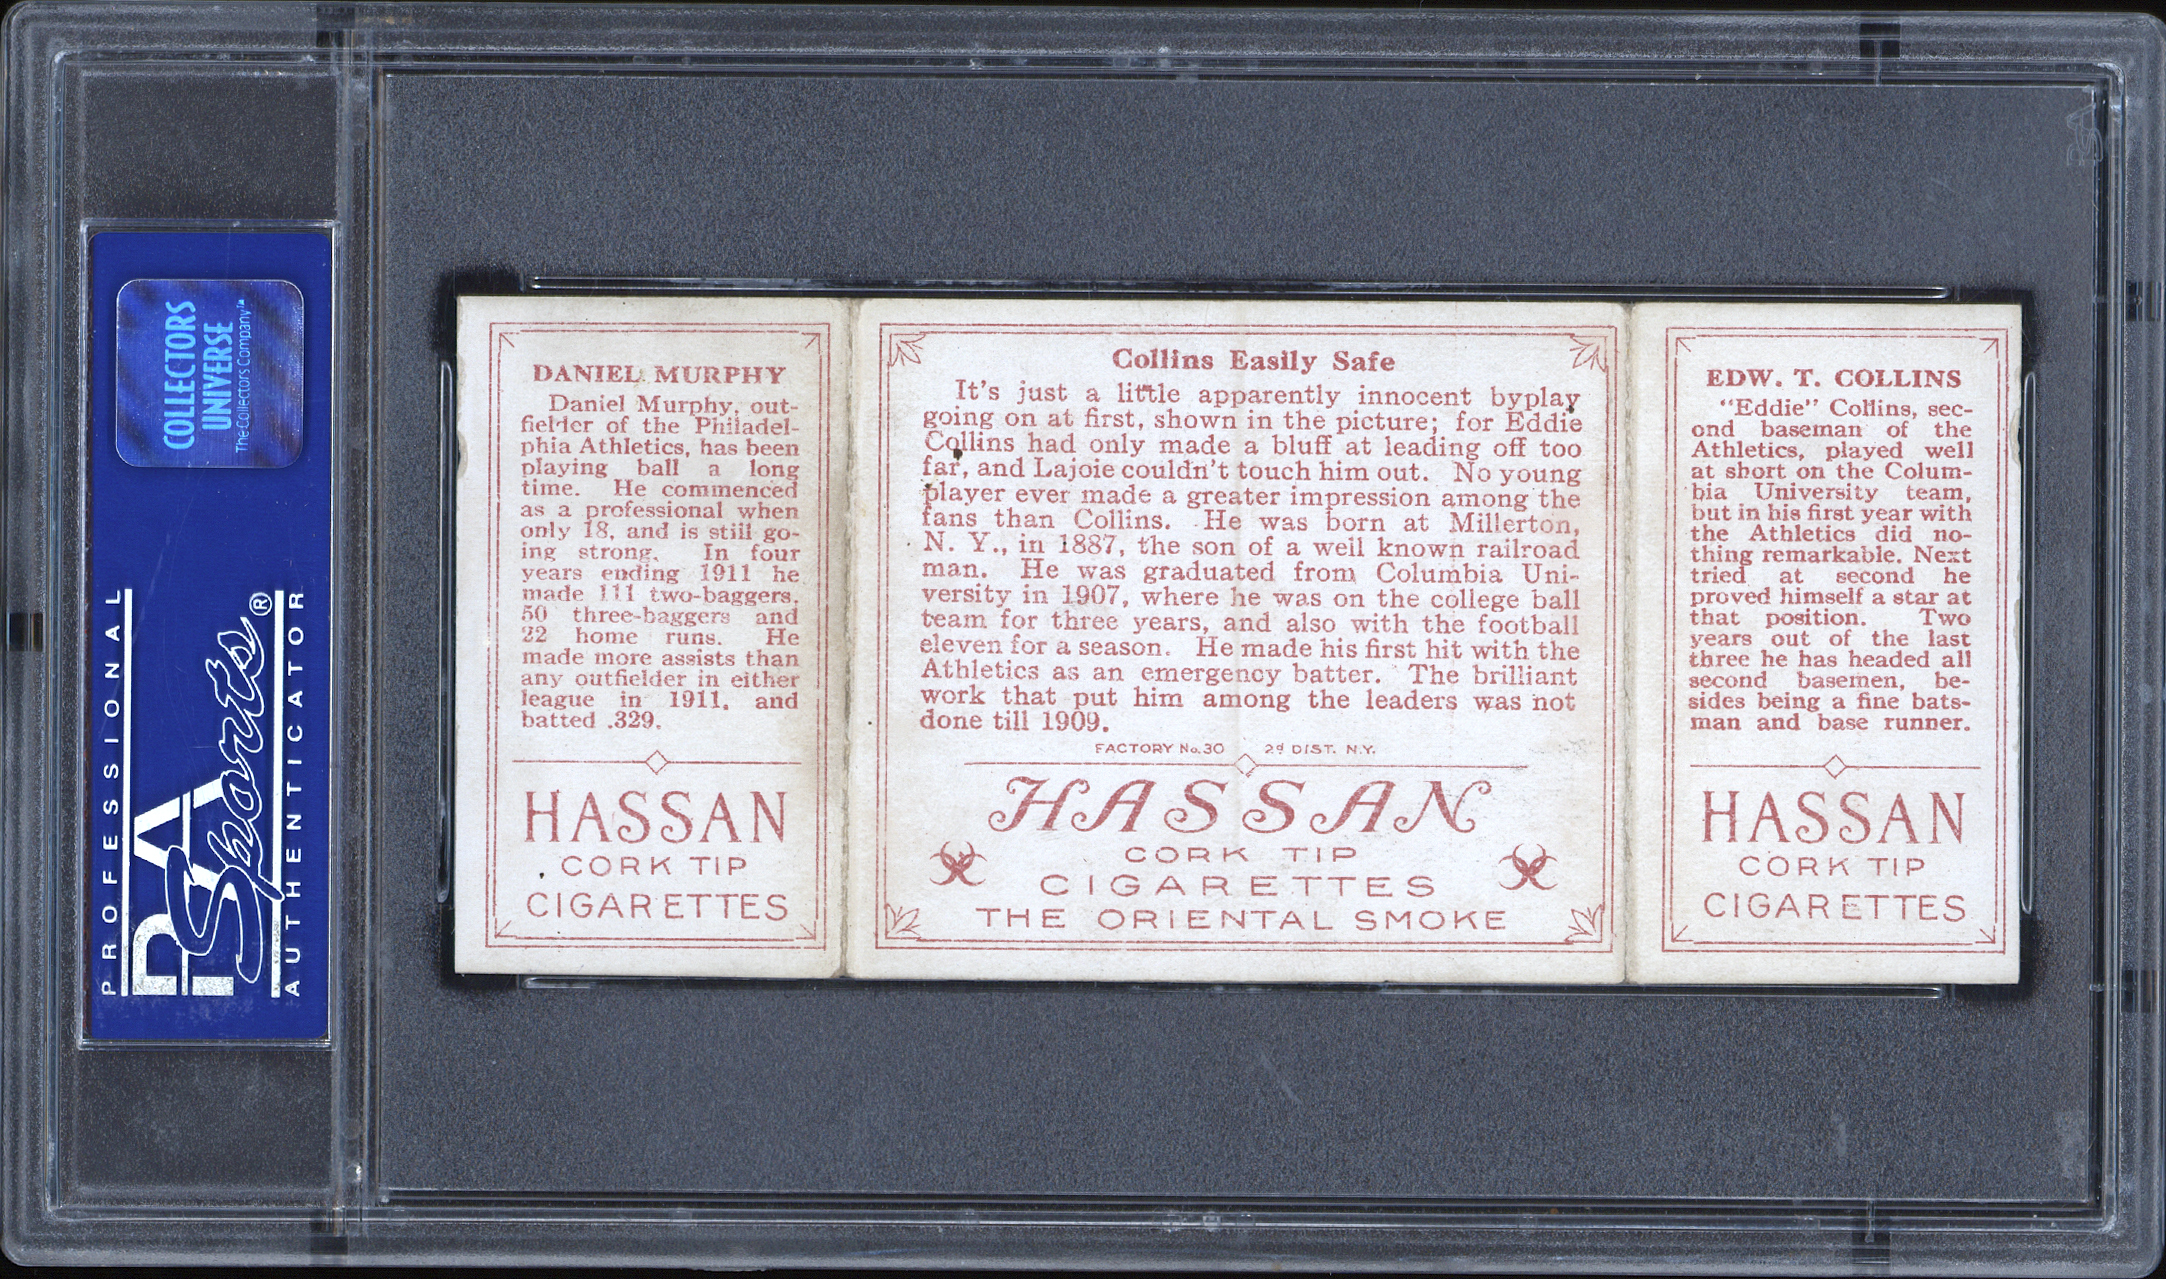 COLLECTORS
UNIVERSE
The Collectors Company™
PROFESSIONAL
PSA
Sports®
AUTHENTICATOR
DANIEL MURPHY
Daniel Murphy, out-
fielder of the Philadel-
phia Athletics, has been
playing ball a long
time. He commenced
as a professional when
only 18, and is still go-
ing strong. In four
years ending 1911 he
made 111 two-baggers,
50 three-baggers and
22 home runs. He
made more assists than
any outfielder in either
league in 1911, and
batted .329.
HASSAN
CORK TIP
CIGARETTES
Collins Easily Safe
It's just a little apparently innocent byplay
going on at first, shown in the picture; for Eddie
Collins had only made a bluff at leading off too
far, and Lajoie couldn't touch him out. No young
player ever made a greater impression among the
fans than Collins. He was born at Millerton,
N. Y., in 1887, the son of a well known railroad
man. He was graduated from Columbia Uni-
versity in 1907, where he was on the college ball
team for three years, and also with the football
eleven for a season. He made his first hit with the
Athletics as an emergency batter. The brilliant
work that put him among the leaders was not
done till 1909.
FACTORY No. 30 2d DIST. N.Y.
HASSAN
CORK TIP
CIGARETTES
THE ORIENTAL SMOKE
EDW. T. COLLINS
"Eddie" Collins, sec-
ond baseman of the
Athletics, played well
at short on the Colum-
bia University team,
but in his first year with
the Athletics did no-
thing remarkable. Next
tried at second he
proved himself a star at
that position. Two
years out of the last
three he has headed all
second basemen, be-
sides being a fine bats-
man and base runner.
HASSAN
CORK TIP
CIGARETTES
PSA